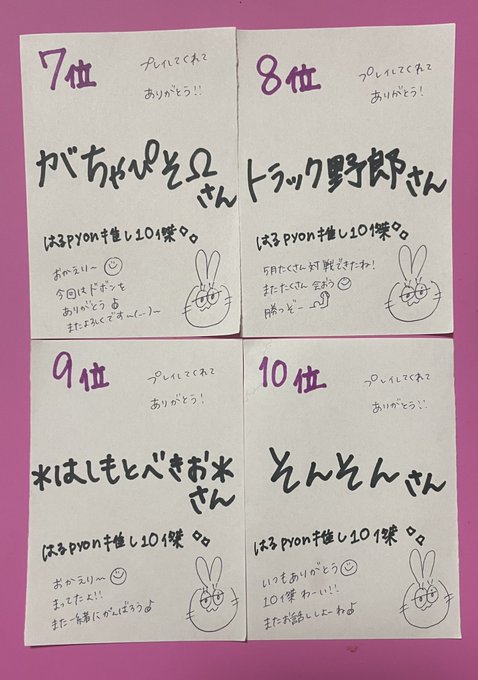 7位
プレイしてくれて
ありがとう!!
がちゃぴそΩ
さん
はるpyon推し10傑
おかえり〜
今回はドボンを
ありがとう♪
またよろしくです〜(-.-)〜
8位
プレイしてくれて
ありがとう!
トラック野郎さん
はるpyon推し10傑
5月たくさん対戦できたね!
またたくさん会おう
勝つぞー
9位
プレイしてくれて
ありがとう!
*はしもとべきお*
さん
はるpyon推し10傑
おかえり〜
まってたよ!!
また一緒にがんばろう♪
10位
プレイしてくれて
ありがとう!!
そんそんさん
はるpyon推し10傑
いつもありがとう
10傑わーい!!
またお話ししよーね♪